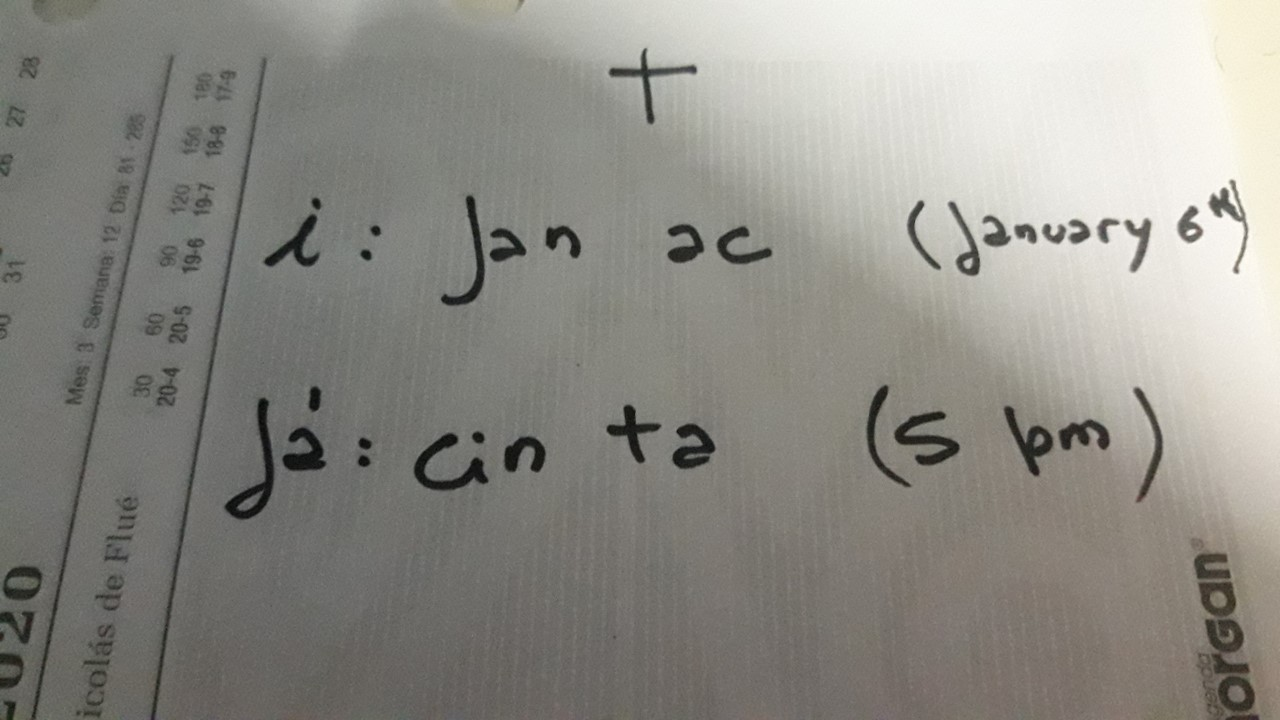 +
i: Jan ac (January 6th)
Já: cin ta (5 pm)
28
27
26
31
Mes: 3 Semana: 12 Día: 81 - 285
30 60 90 120 150 180
20-4 20-5 19-6 19-7 18-8 17-9
2020
icolás de Flué
agenda
organ